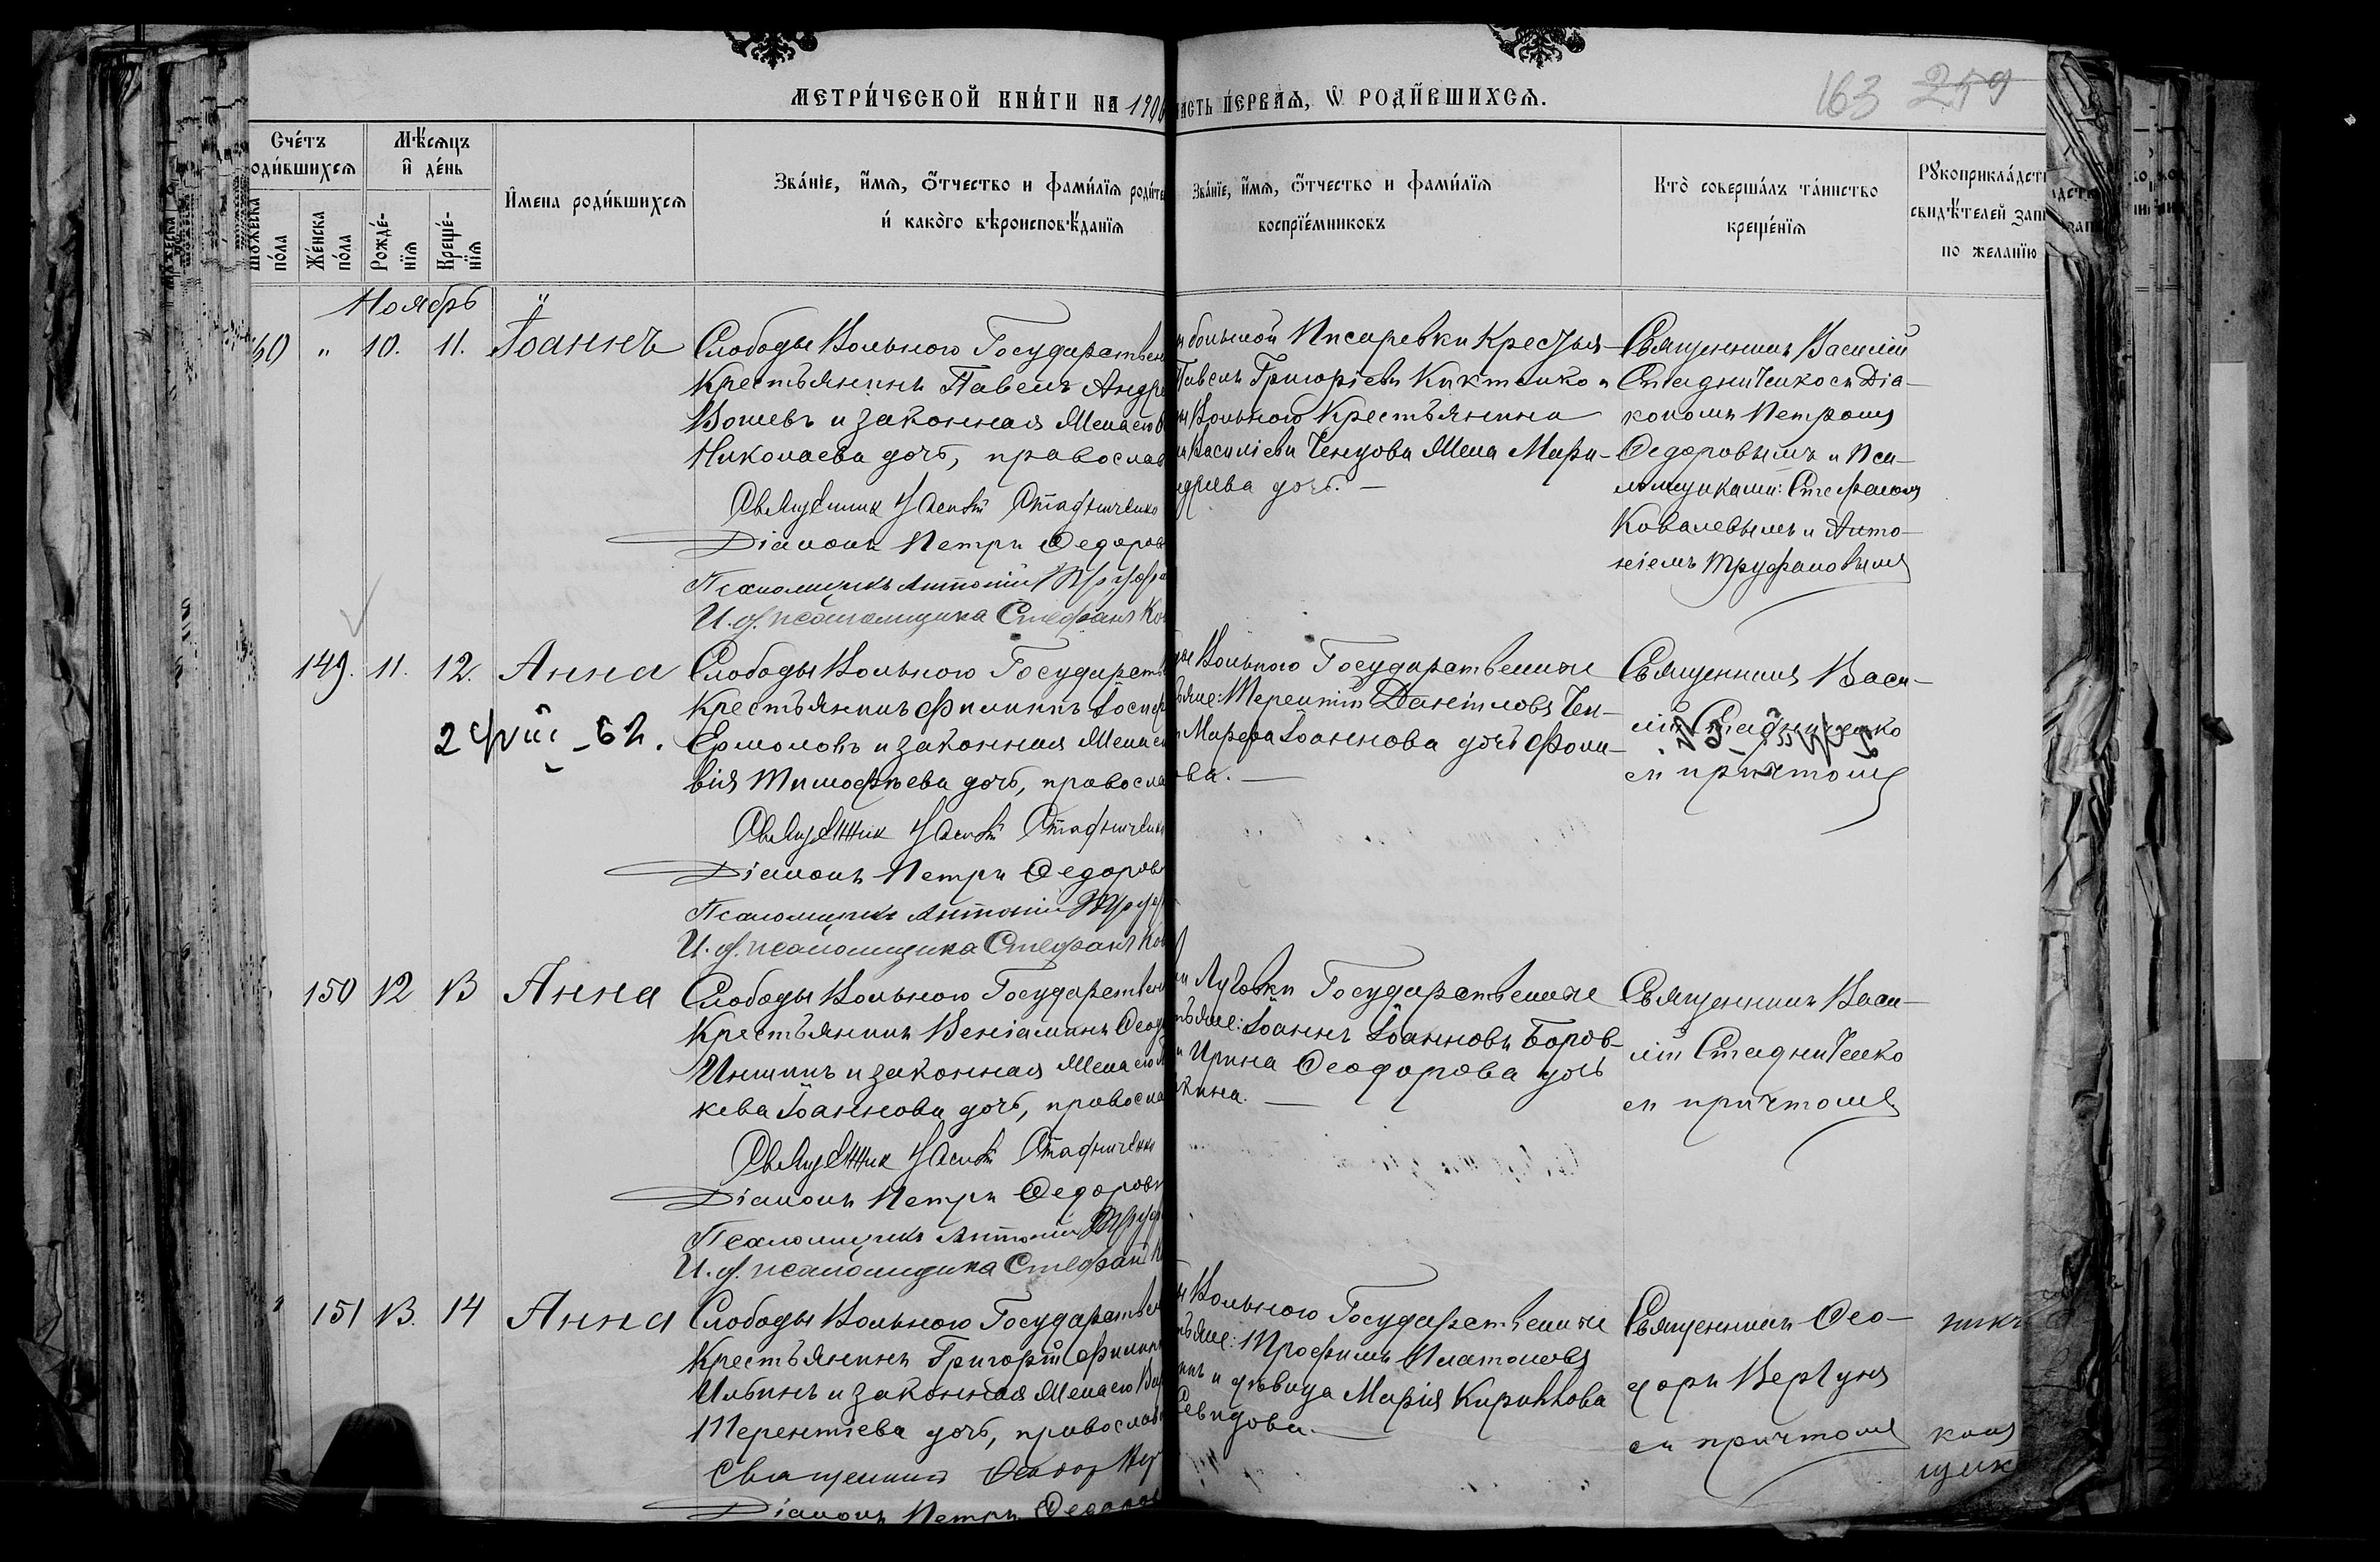 МЕТРИЧЕСКОЙ КНИГИ НА 1906
ЧАСТЬ ПЕРВАЯ, Ѿ РОДИВШИХСЯ.
163 259
Счетъ
родившихся
Мѣсяцъ
и день
Имена родившихся
Званіе, имя, отчество и фамилія родите
и какого вѣроисповѣданія
Званіе, имя, отчество и фамилія
воспріемниковъ
Кто совершалъ таинство
крещенія
Рукоприкладст
свидѣтелей запи
по желанію
Мужеска пола
Женска пола
Рожденія
Крещенія
Ноябрь
60 " 10. 11. Іоаннъ
Слободы Вольного Государствен
Крестьянинъ Павелъ Андре
и законная Жена его
Николаева дочь, православ
Священник Василій Стадниченко
Діаконъ Петръ Федоров
Псаломщикъ Антоній Труфа
И. ф. псаломщика Стефанъ Ков
большой Писаревки Крестья-
Павелъ Григорьевъ Киктенко и
Вольного Крестьянина
Василіева Ченцова Жена Мари-
дреева дочь. —
Священникъ Василій
Стадниченко съ Діа-
кономъ Петромъ
Федоровымъ и Пса-
ломщиками: Стефаномъ
Ковалевымъ и Анто-
ніемъ Труфановымъ
149. 11. 12. Анна
Слободы Вольного Государств
Крестьянинъ Филиппъ Іосиф
Ермоловъ и законная Жена е
вія Тимофѣева дочь, правосла
Священник Василій Стадниченко
Діаконъ Петръ Федоров
Псаломщикъ Антоній Труф
И. ф. псаломщика Стефанъ Ков
ды Вольного Государственные
яне: Терентій Даніиловъ Чен-
Марѳа Іоаннова дочь Фоми-
ова. —
Священникъ Васи-
лій Стадниченко
съ причтомъ
150 12 13 Анна
Слободы Вольного Государствен
Крестьянинъ Веніаминъ Ѳеод
Иншинъ и законная Жена его
кева Іоаннова дочь, правосла
Священник Василій Стадниченко
Діаконъ Петръ Федоровъ
Псаломщикъ Антоній Труф
И. ф. псаломщика Стефанъ К
Луговки Государственные
тьяне: Іоаннъ Іоанновъ Боров-
и Ирина Ѳеодорова дочь
кина. —
Священникъ Васи-
лій Стадниченко
съ причтомъ
" 151 13. 14 Анна
Слободы Вольного Государствен
Крестьянинъ Григорій Филипп
Ильинъ и законная Жена его Вар
Терентіева дочь, православ
Священникъ Ѳеодор Вер
Діаконъ Петръ Федоров
Вольного Государственные
тьяне: Трофимъ Платоновъ
инъ и дѣвица Марія Кириллова
Севидова. —
Священникъ Ѳео-
доръ Вергунъ
съ причтомъ
никъ
конъ
щик